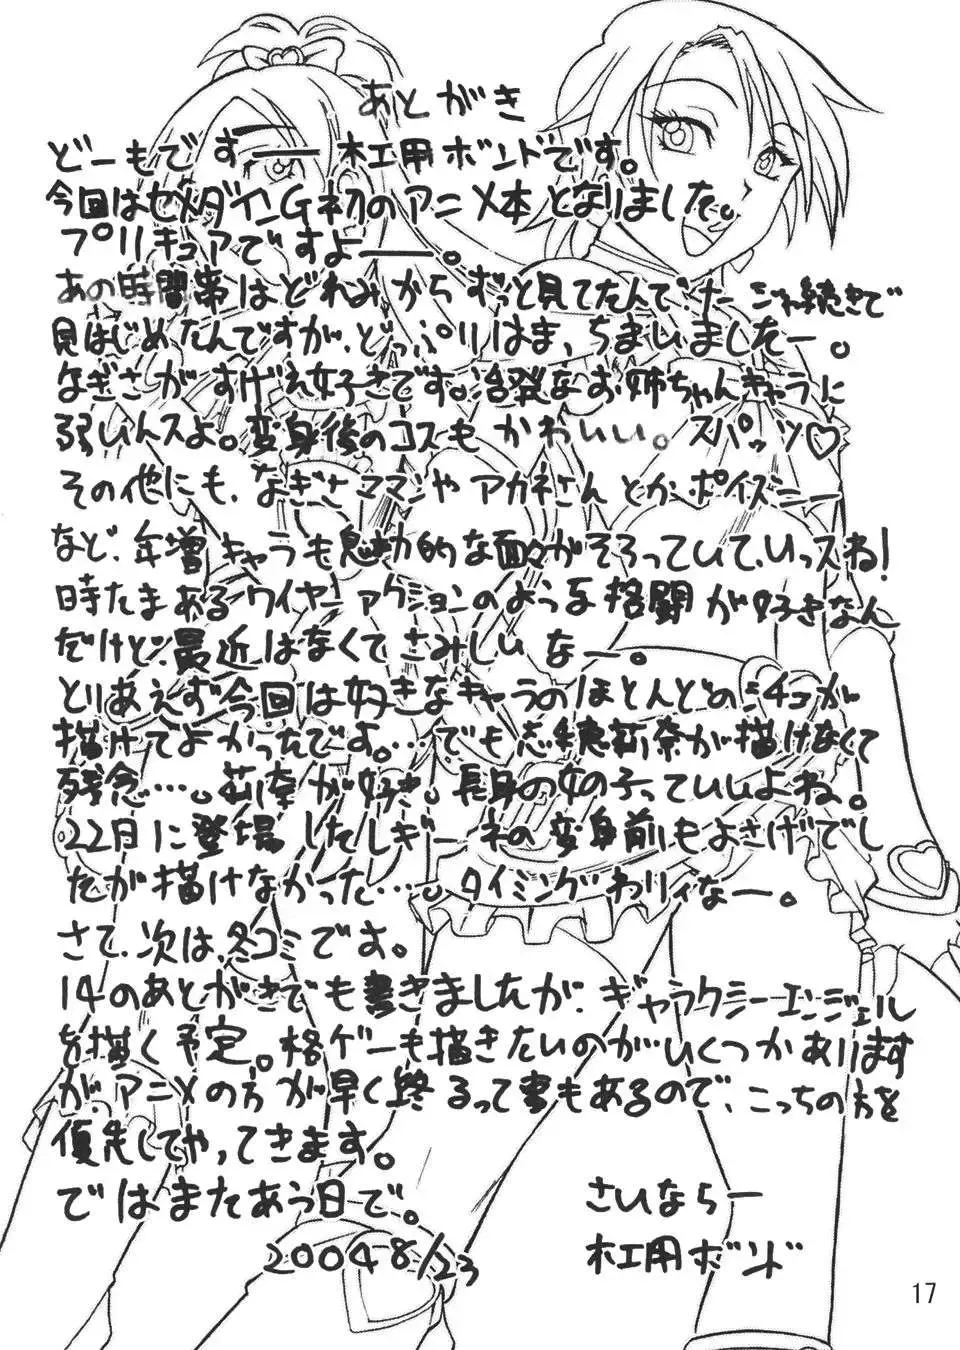 あとがき
どーもですー木工用ボンドです。
今回はセメダインG初のアニメ本となりました。
プリキュアですよー。
あの時間帯はどれみからずっと見てたんでその流れ続きで
見はじめたんですが、どっぷりはま、ちまいましたー。
なぎさがすげえ好きです。活発なお姉ちゃんキャラに
弱いんスよ。変身後のコスもかわいい。スパッツ♡
その他にも、なぎさママンやアカネさんとかポイズニー
など、年増キャラも魅力的な面々がそろっていて、いいっスね!
時たまあるワイヤーアクションのような格闘が好きなん
だけど最近はなくてさみしいなー。
とりあえず今回は好きなキャラのほとんどのシチュが
描けてよかったです。…でも志穂莉奈が描けなくて
残念…。莉奈が好き。長身の女の子っていいよね。
22月に登場したレギーネの変身前もよさげでし
たが描けなかった…。タイミングわりィなー。
さて、次は、冬コミです。
14のあとがきでも書きましたが、ギャラクシーエンジェル
を描く予定。格ゲーも描きたいのが、いくつかあります
が、アニメの方が早く終るって事もあるので、こっちの方を
優先してやってきます。
ではまたあう日で。
さいならー
2004 8/23
木工用ボンド
17